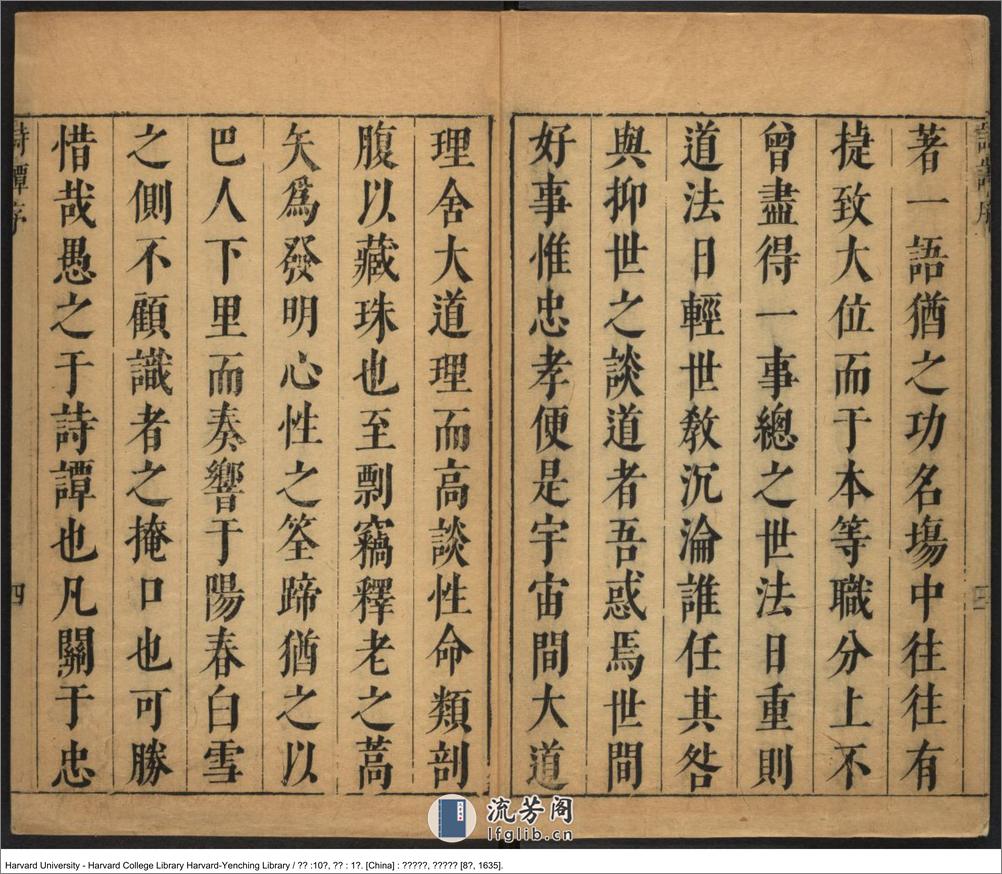 著一語猶之功名塲中往往有
捷致大位而于本等職分上不
曾盡得一事總之世法日重則
道法日輕世敎沉淪誰任其咎
與抑世之談道者吾惑焉世間
好事惟忠孝便是宇宙間大道
理舍大道理而高談性命類剖
腹以藏珠也至剽竊釋老之蒿
矢爲發明心性之筌蹄猶之以
巴人下里而奏響于陽春白雪
之側不顧識者之掩口也可勝
惜哉愚之于詩譚也凡關于忠
詩譚序
四
流芳阁
lfglib.cn
Harvard University - Harvard College Library Harvard-Yenching Library / ?? :10?, ?? : 1?. [China] : ?????, ????? [8?, 1635].